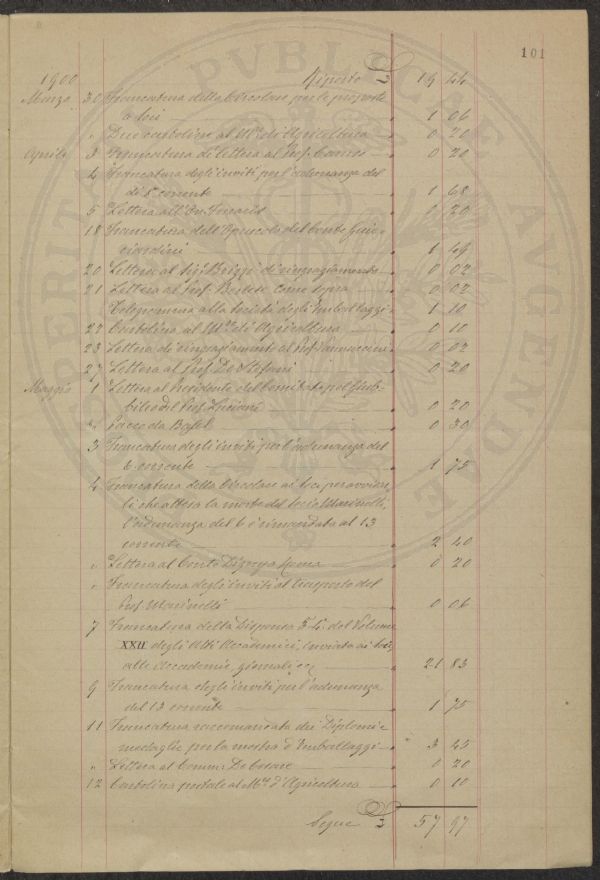 101
1900 Riporto £ 19 44
Marzo 30 Francatura della Circolare per le proposte
a Soci 1 06
" Due cartoline al Mro di Agricoltura 0 20
Aprile 3 Francatura di lettera al Prof. Caruso 0 20
4 Francatura degli inviti per l'adunanza del
dì 8 corrente 1 68
5 Lettera all'On. 0 20
18 Francatura dell'Opuscolo del Conte Guic-
ciardini 1 49
20 Lettera al Sig. Brizzi di ringraziamento 0 02
21 Lettera al Prof. Berlese come sopra 0 02
Telegramma alla Società degli Imballaggi 1 10
22 Cartolina al Mro di Agricoltura 0 10
23 Lettera di ringraziamento al Prof. Vannuccini 0 02
27 Lettera al Prof. De Stefani 0 20
Maggio 1 Lettera al Presidente del Comitato pel Giub-
bileo del Prof. Luciani 0 20
" Pacco da 0 30
3 Francatura degli inviti per l'adunanza del
6 corrente 1 75
4 Francatura della Circolare ai Soci per avvisar-
li che attesa la morte del Socio Marinelli,
l'adunanza del 6 è rimandata al 13
corrente 2 40
" Lettera al Conte Roma 0 20
" Francatura degli inviti al trasporto del
Prof. Marinelli 0 06
7 Francatura della Dispensa 3-4 del Volume
XXII degli Atti Accademici, inviata ai Soci,
alle Accademie, giornali ecc 21 83
9 Francatura degli inviti per l'adunanza
del 13 corrente 1 75
11 Francatura raccomandata dei Diplomi e
medaglie per la mostra d'Imballaggi 3 45
" Lettera al Comm. De Cesare 0 20
12 Cartolina postale al Mro d'Agricoltura 0 10
Segue £ 57 97